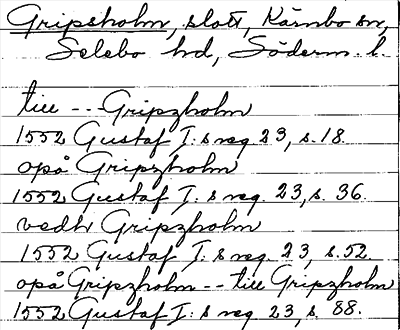 Gripsholm, slott, Kärnbo sn,
Selebo hd, Söderm. l.
till --- Gripzholm
1552 Gustaf I:s reg. 23, s. 18.
opå Gripzholm
1552 Gustaf I:s reg. 23, s. 36.
vedh Gripzholm
1552 Gustaf I:s reg. 23, s. 52.
opå Gripzholm -- till Gripzholm
1552 Gustaf I:s reg. 23, s. 88.